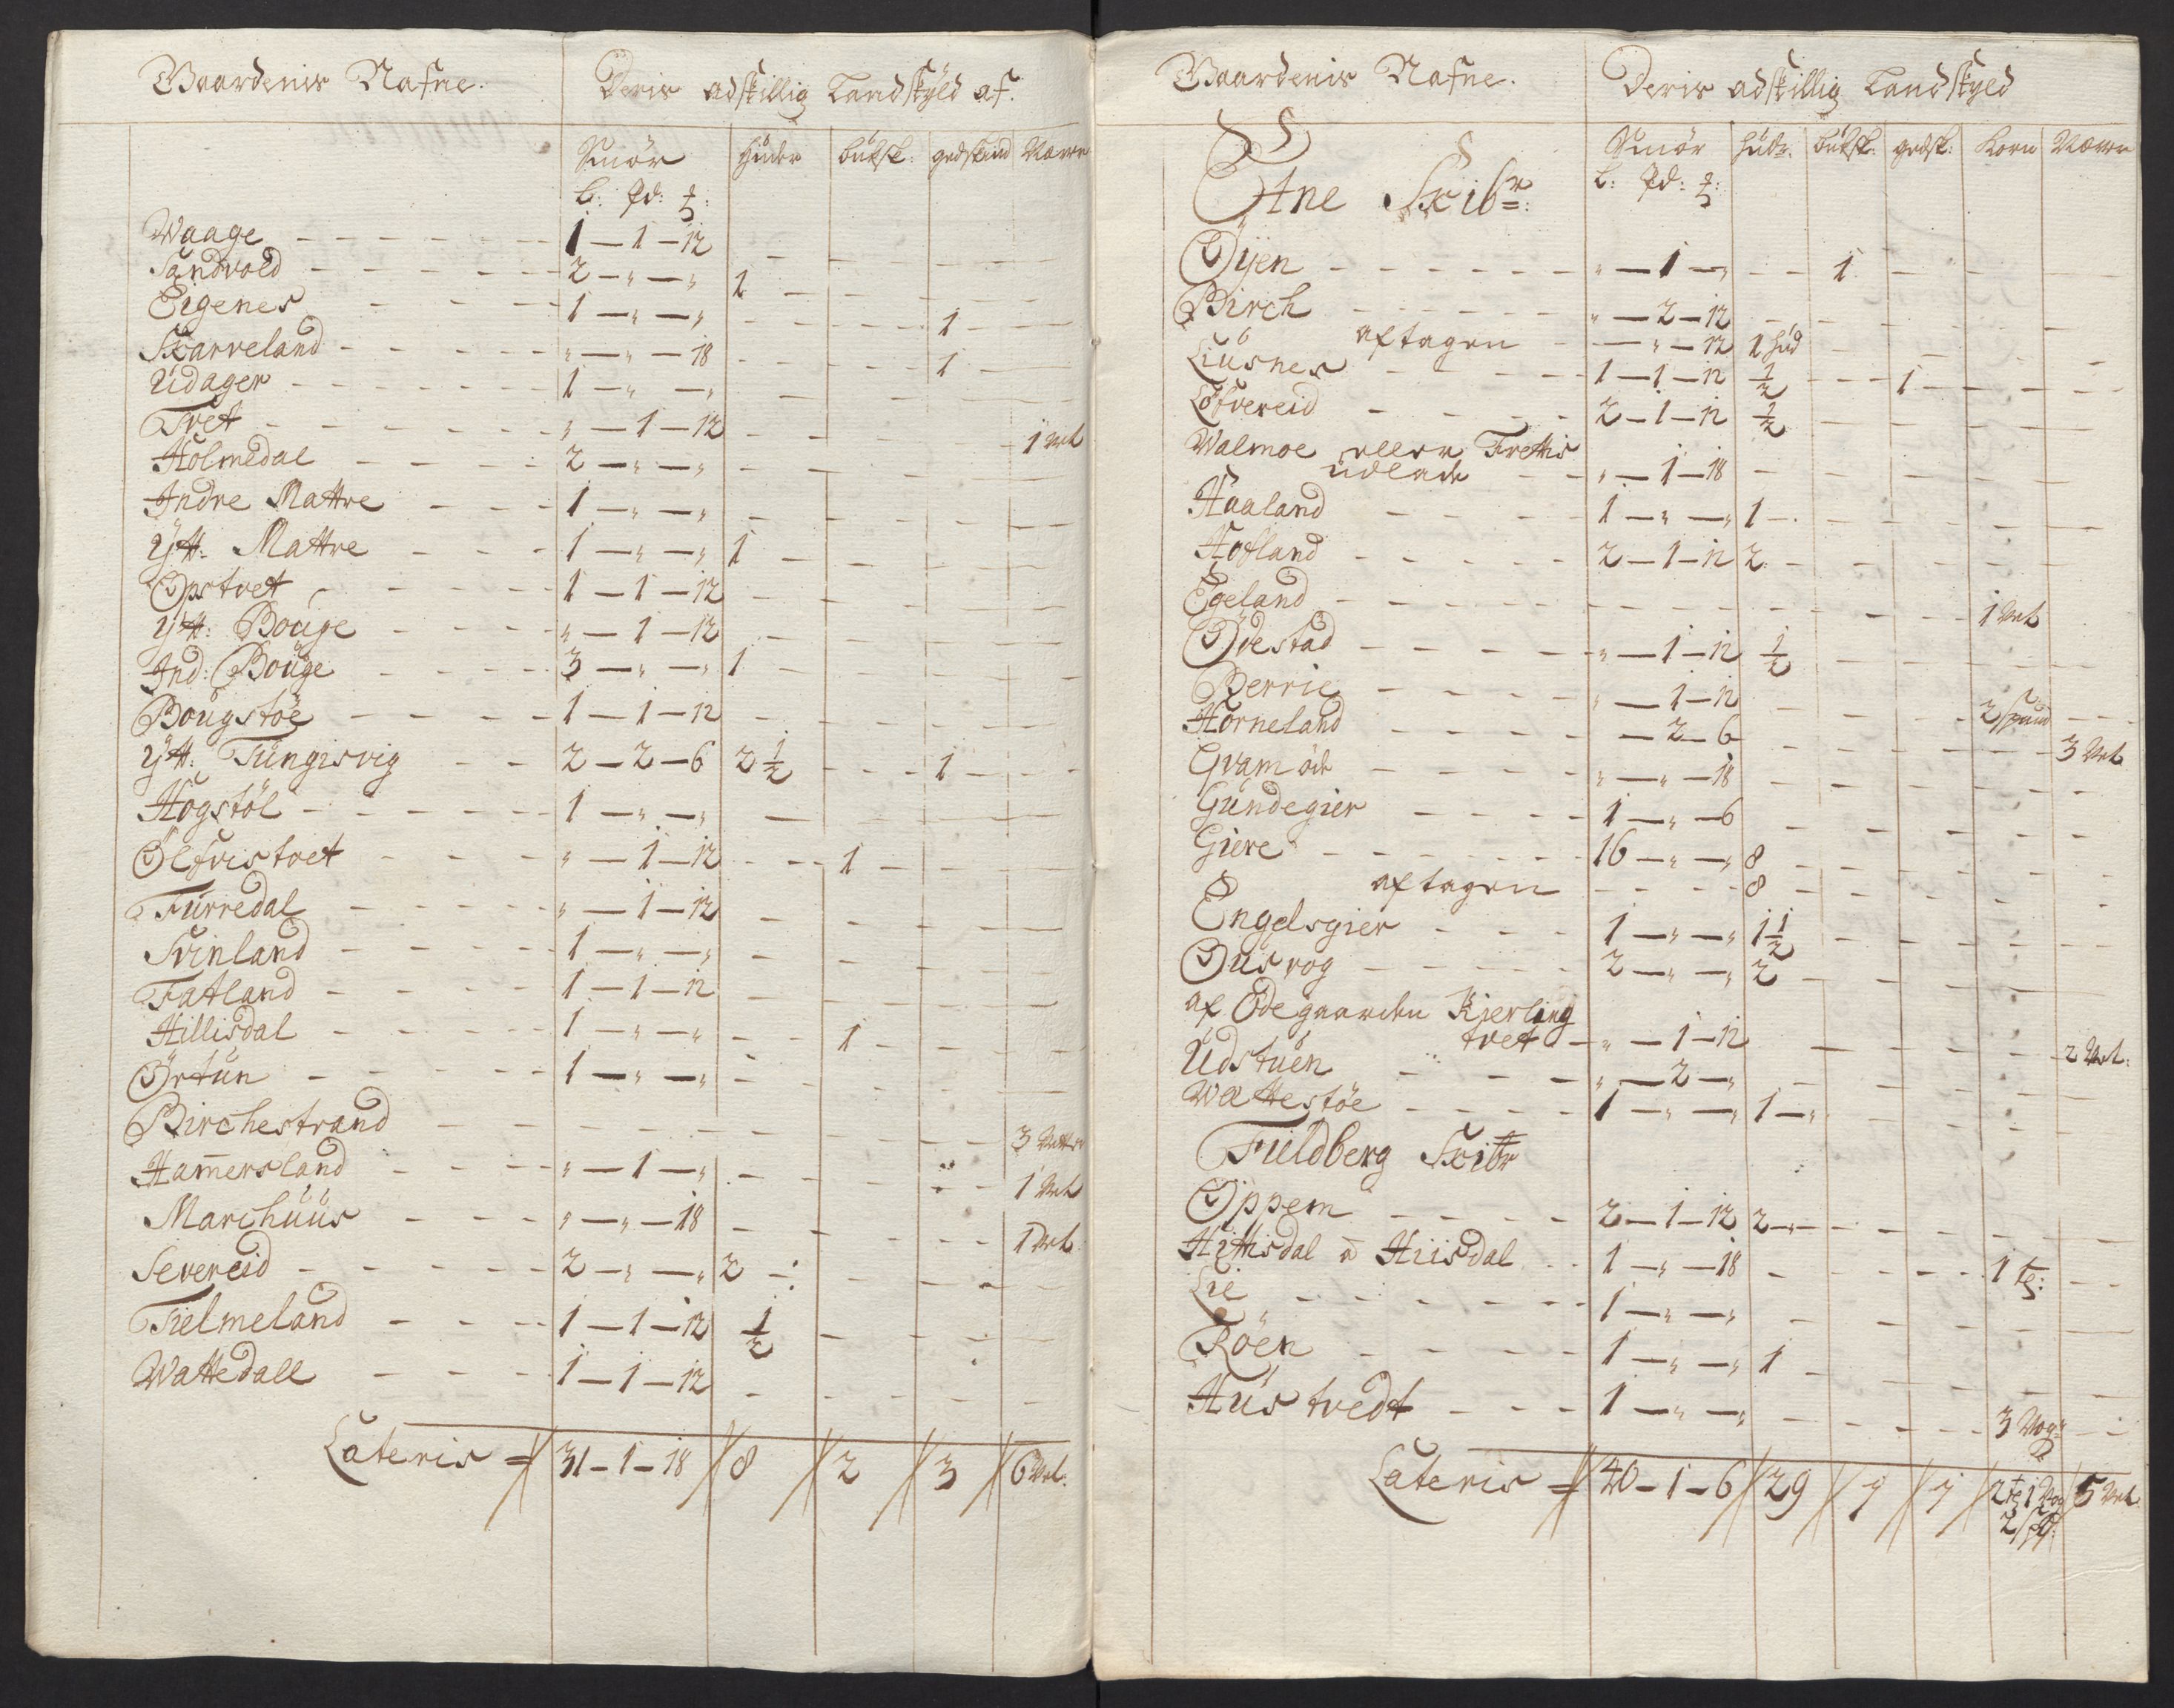 Gaardenis Nafne. Deris adskillig Landskyld af.
Smör Huder buksk: gedskind Warer
L: Pd: ℔:
Waage 1 — 1 — 12
Sandvold 2 — „ — „ 1
Eigenes 1 — „ — „ 1
Skarveland „ — „ — 18 1
Udager 1 — „ — „
Tvet „ — 1 — 12 1 Vet
Holmedal 2 — „ — „
Indre Mattre 1 — „ — „
Ytt: Mattre 1 — „ — „ 1
Opstvet 1 — 1 — 12
Ytt: Bouge „ — 1 — 12
Ind: Bouge 3 — „ — „ 1
Bougstöe 1 — 1 — 12
Ytt: Tungisvig 2 — 2 — 6 2½ 1
Högstöl 1 — „ — „
Ølfvistvet „ — 1 — 12 1
Furredal „ — 1 — 12
Svinland 1 — „ — „
Fatland 1 — 1 — 12
Hillisdal 1 — „ — „ 1
Ørtun 1 — „ — „
Birchestrand 3 Vetter
Ham̄ersland „ — 1 — „ 1 Vet
Marchuus „ — „ — 18 1 Vet
Severeid 2 — „ — „ 2
Tielmeland 1 — 1 — 12 ½
Wattedall 1 — 1 — 12
Lateris = 31 – 1 – 18 8 2 3 6 Vet:
Gaardenis Nafne. Deris adskillig Landskyld
Etne Skibr: Smör Hud: buksk: gedsk: Korn Warer
L: Pd: ℔:
Øyen „ — 1 — „ 1
Birch „ — 2 — 12
aftagen — „ — 12 1 hud
Liusnes 1 — 1 — 12 ½ 1
Löfvereid 2 — 1 — 12 ½
Walmoe eller Frettis
udlade „ — 1 — 18
Haaland 1 — „ — „ 1
Hofland 2 — 1 — 12 2
Egeland 1 Vet
Ødestad „ — 1 — 12 ½
Berrie „ — 1 — 12 2 spand
Horneland — 2 — 6 3 Vet
Gvam öde „ — „ — 18
Gundegier 1 — „ — 6
Giere 16 — „ — „ 8
aftagen 8
Engelsgier 1 — „ — „ 1½
Ousvog 2 — „ — „ 2
af Ödegaarden Kierling
tvet „ — 1 — 12 2 Vet:
Udstuen „ — 2 — „
Wattestöe 1 — „ — „ 1 — „
Fieldberg Skibr
Oppem 2 — 1 — 12 2
Hittisdal a Hiisdal 1 — „ — 18 1 tr:
Lie 1 — „ — „
Röen 1 — „ — „ 1
Hustvedt 1 — „ — „ 3 Vog:
Lateris = 40 – 1 – 6 29 1 1 2 tr 1 Vog 5 Vet
2 sp: